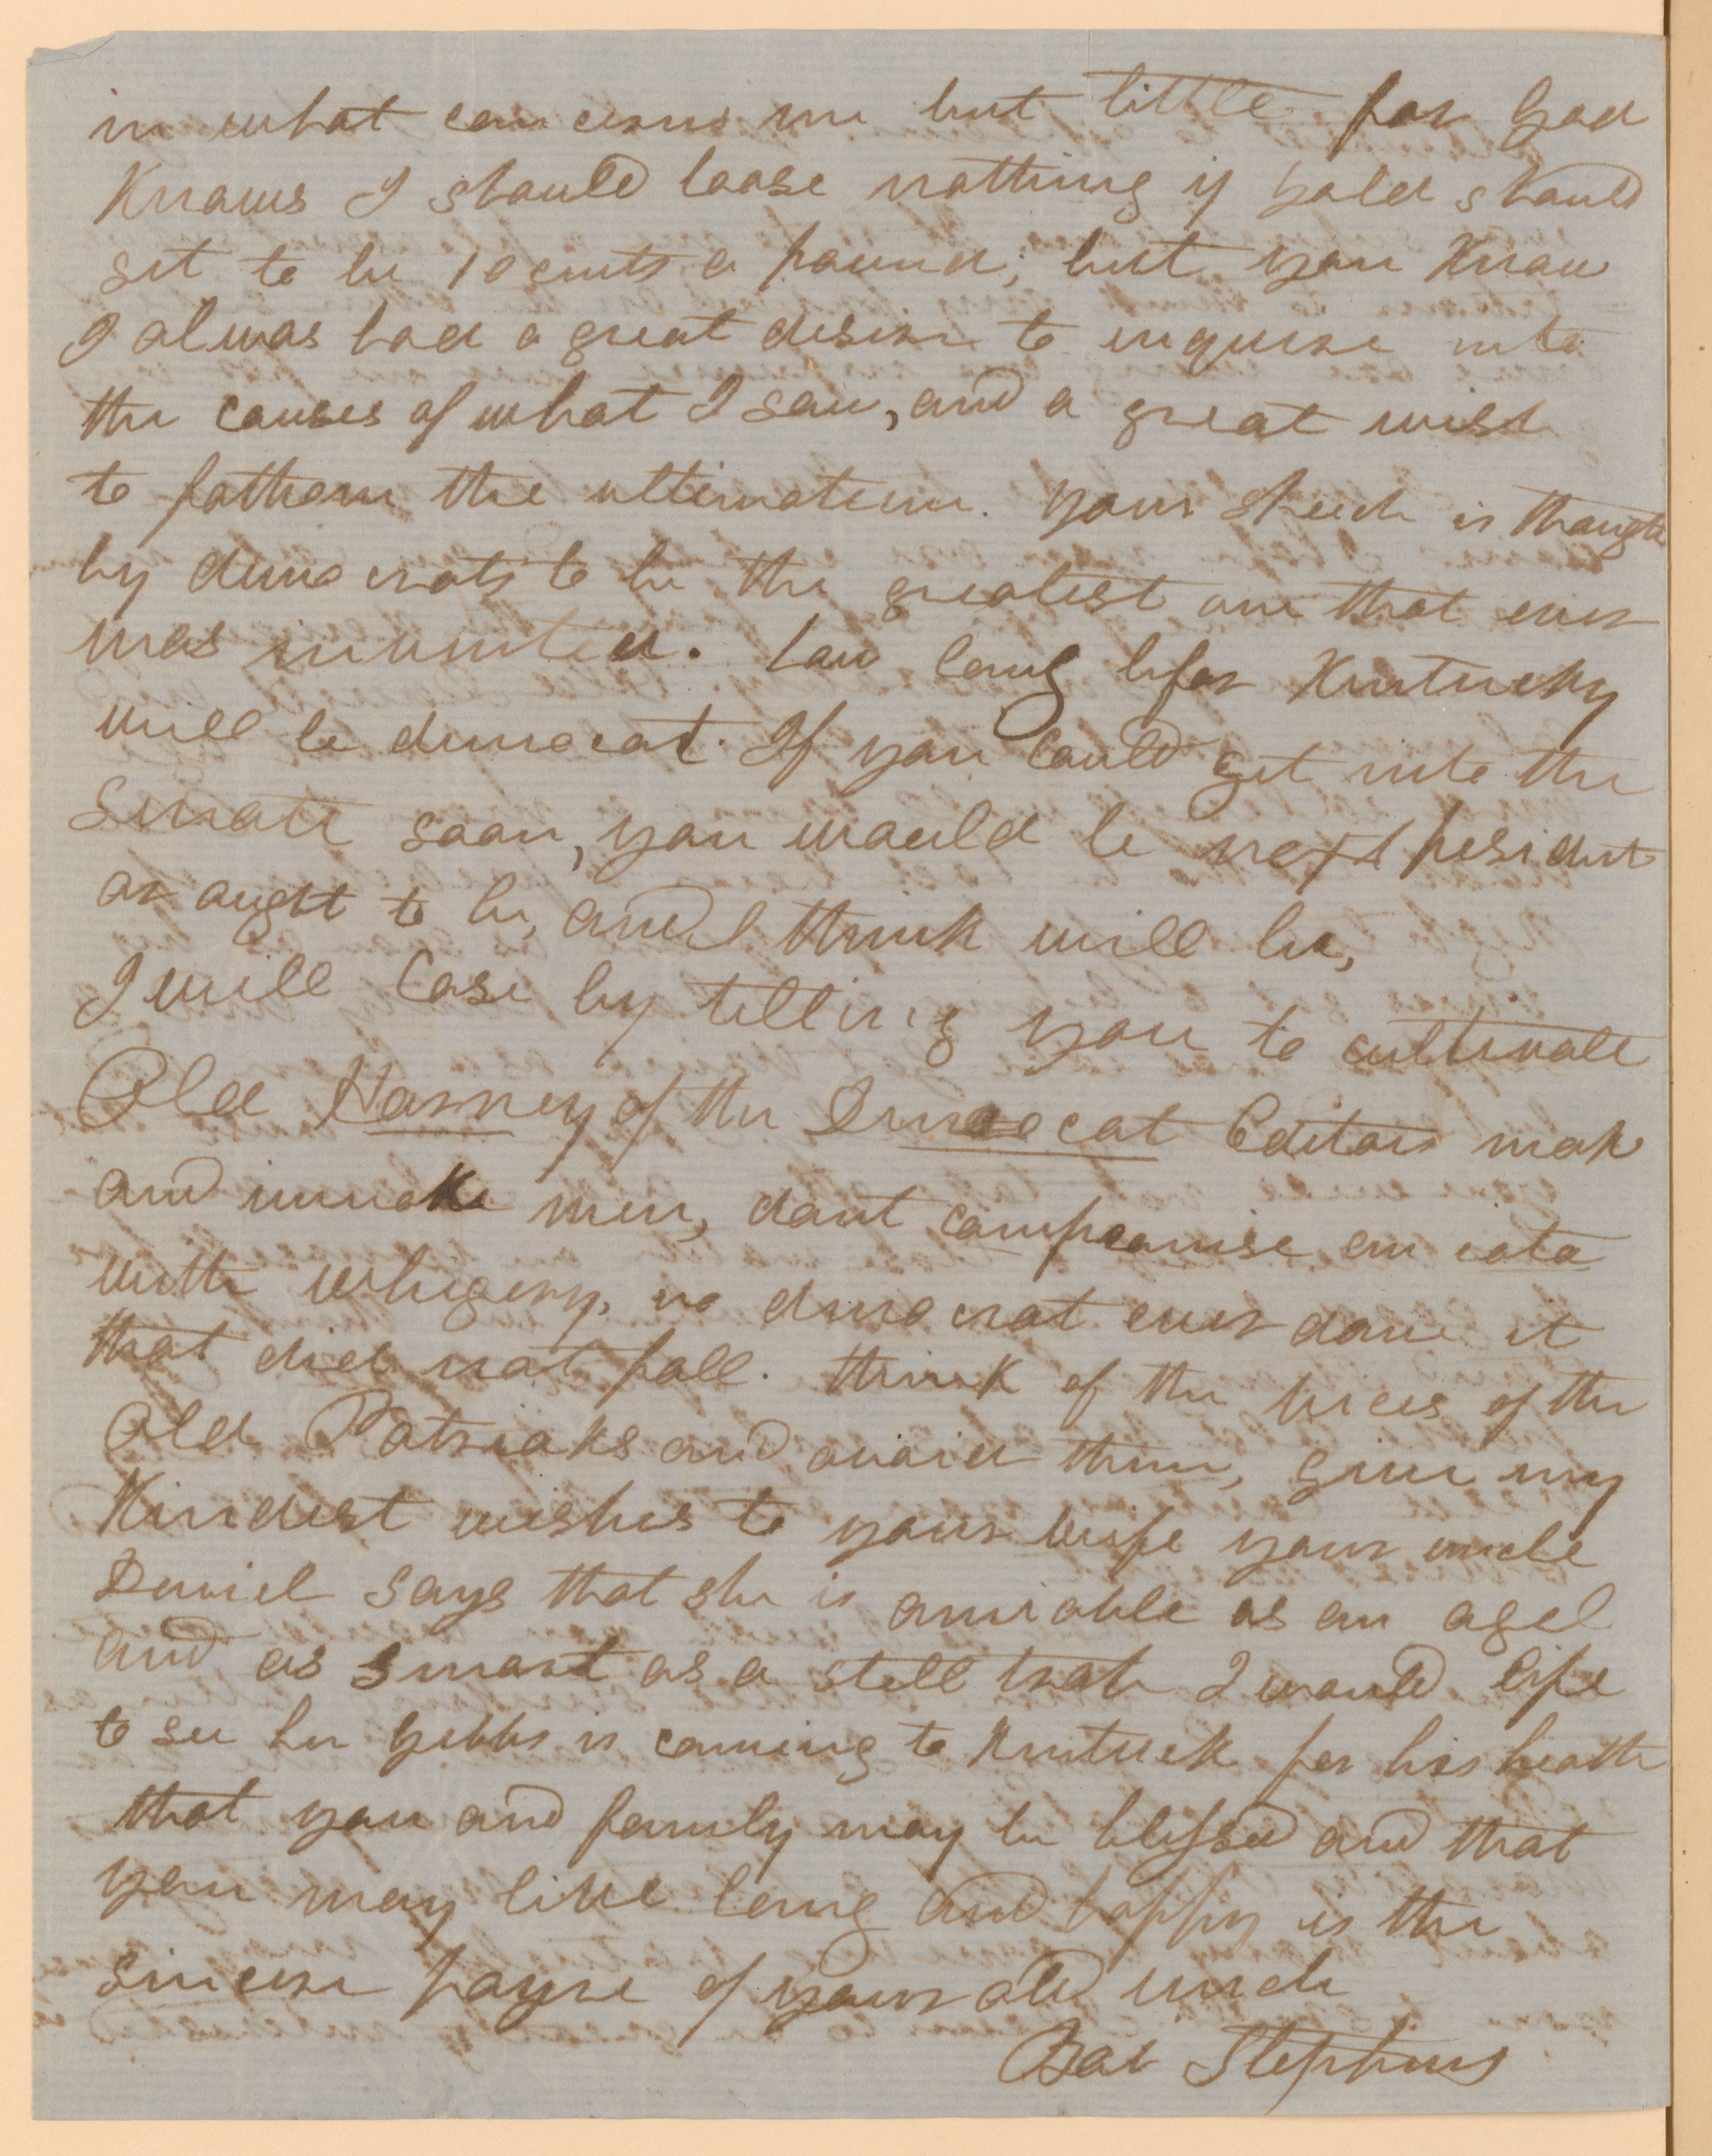 in what concerns me but little for God
Knows I should loose nothing if gold should
get to be 10 cents a pound; but you Know
I alwas had a great desire to enquire into
the causes of what I saw, and a great wish
to fathom the ultimatum. your speech is thought
by democrats to be the greatest one that ever
was invented. how long befor Kentucky
will be democrat. If you could get into the
Senate soon, you would be next president
or ought to be, and I think will be,
I will close by telling you to cultivate
Old Harney of the Democrat Editors mak
and unmake men, dont compromise an iota
with whigery, no democrat ever done it
that did not fall. think of the vices of the
Old Patriaks and avoid them, give my
Kindest wishes to your wife your uncle
Daniel says that she is amiable as an agel
and as smart as a steel trap I would life
to see her Gibbs is coming to Kentuck for his heath
that you and family may be blessed and that
you may live long and happy is the
sincere payre of your old uncle
Bob Stephens